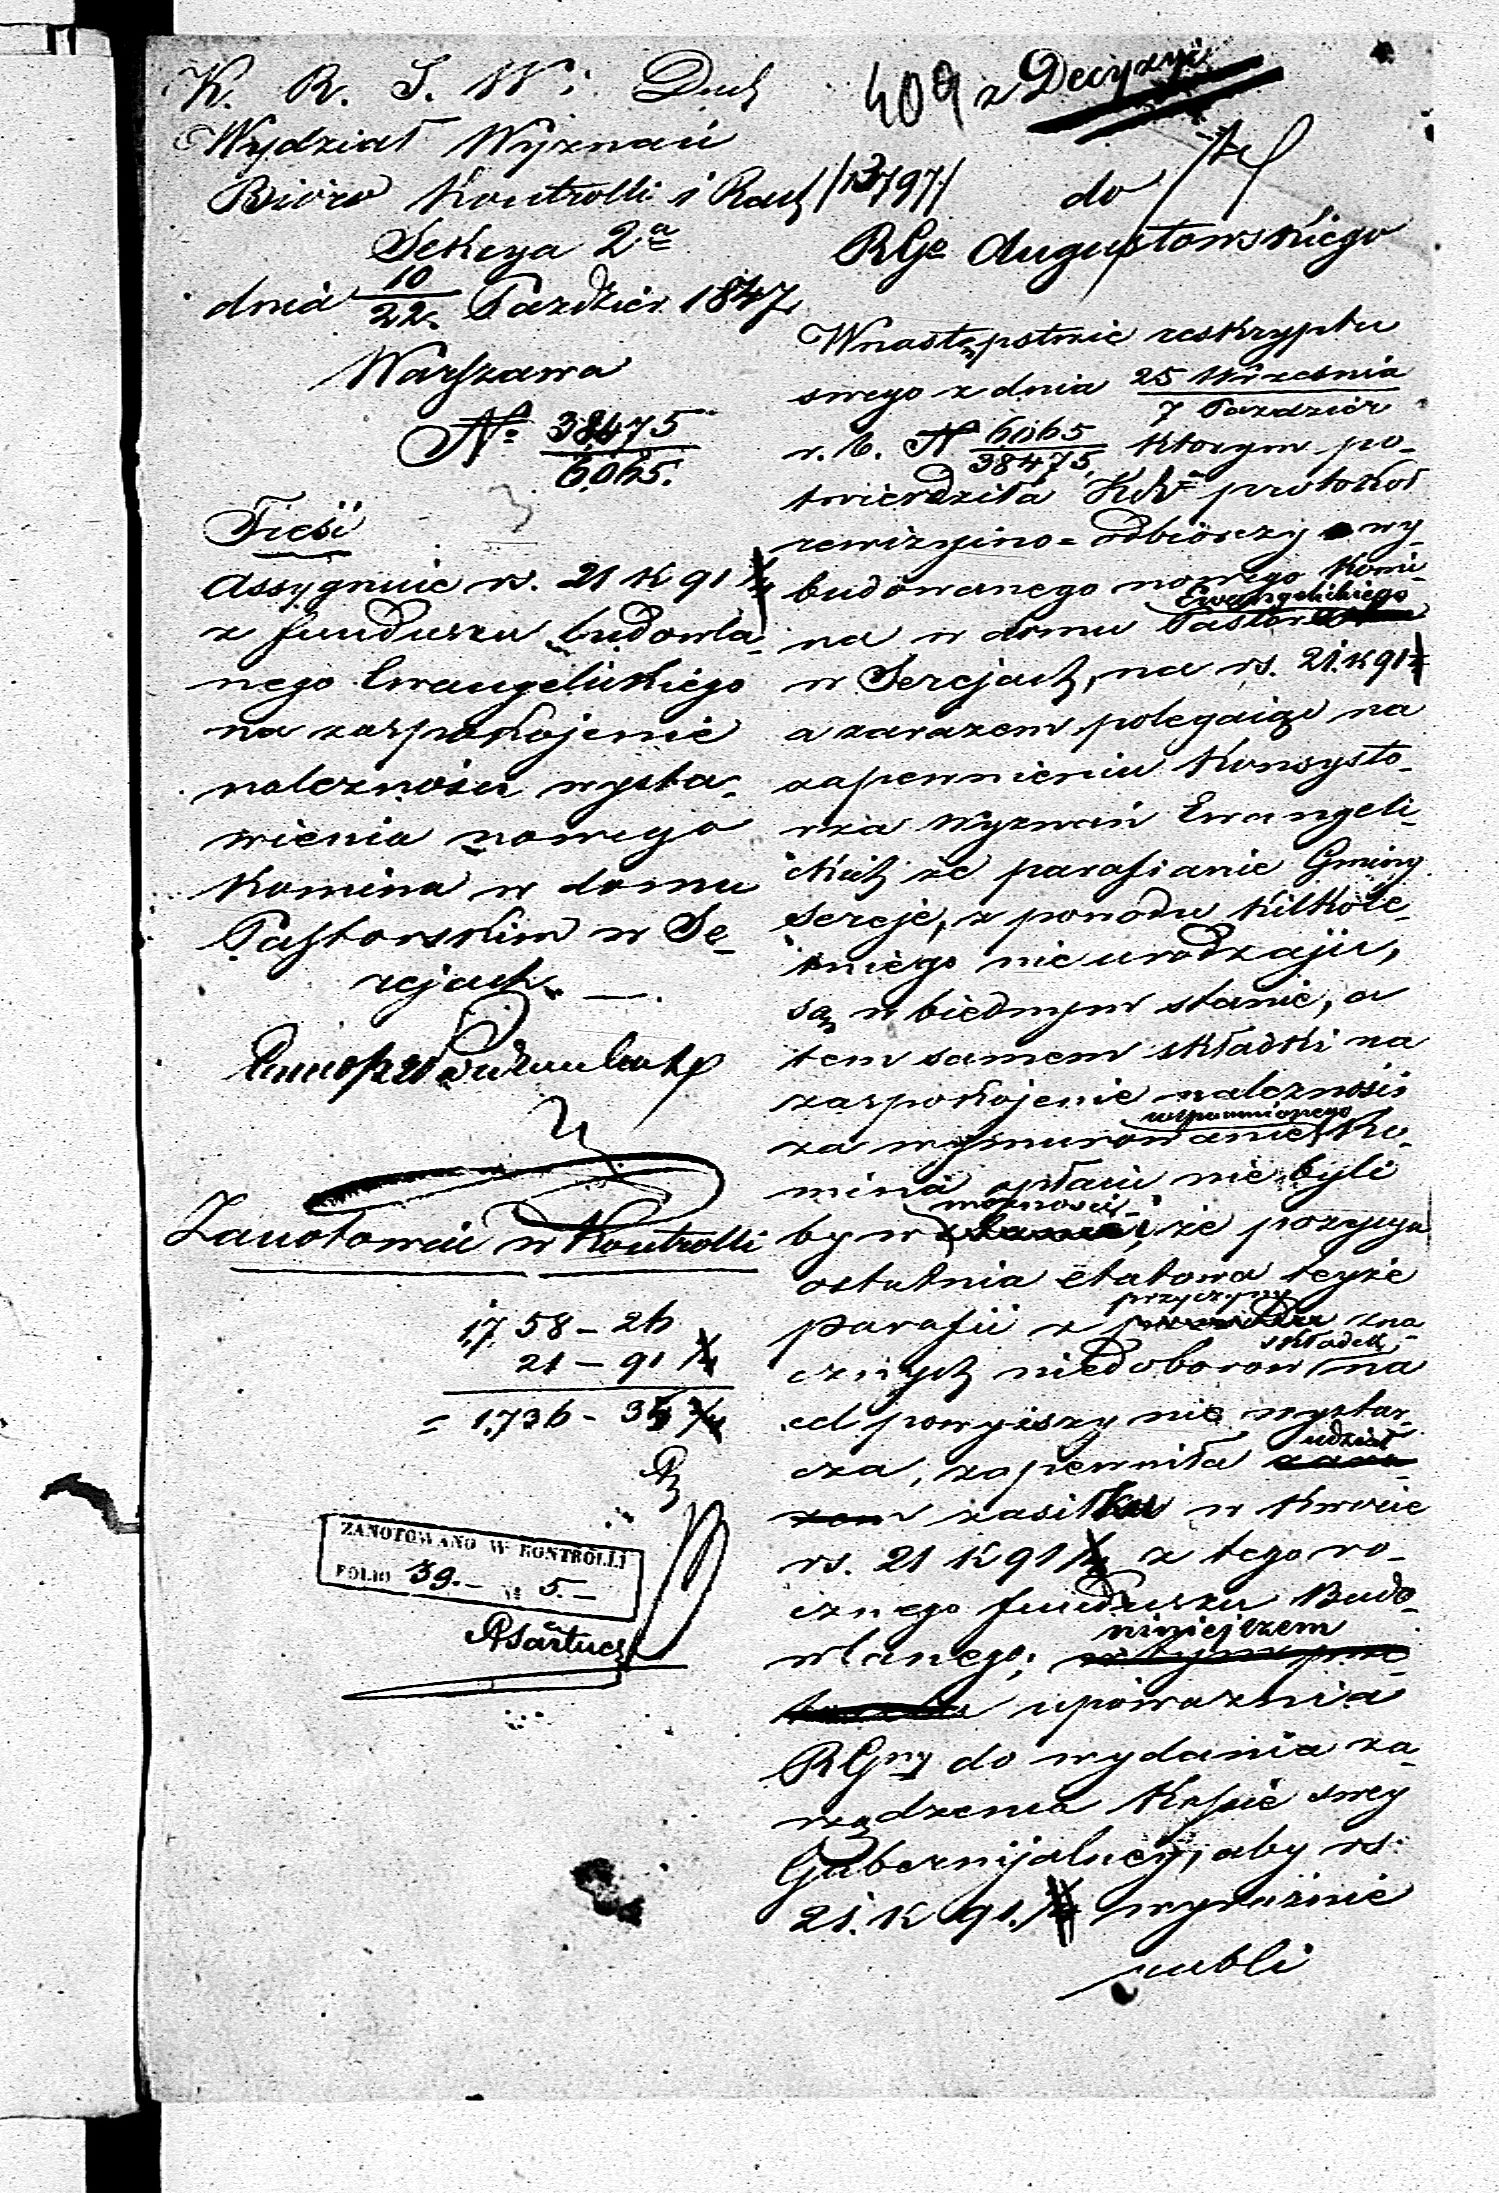 K. R. S. W. i Duch
Wydział Wyznań
Biuro Kontrolli i Rach /13797/
Sekcya 2a
dnia 10/22 Paździer. 1847
Warszawa
No 38475/6065.
Treść
Assygnuie rs. 21 k 91 1/4
z funduszu budowla-
nego Ewangelickiego
na zaspokojenie
należności wysta-
wienia nowego
komina w domu
Pastorskim w Se-
rejach. —
Zanotować w Kontrolli
1,758 - 26
21 - 91 1/4
= 1,736 - 34 3/4
ZANOTOWANO W KONTROLLI
FOLIO 39.- № 5.-
409 z Decyzyi
do
RGo Augustowskiego
W następstwie reskryptu
swego z dnia 25 Września/7 Paździer
r. b. N 6065/38475, którym po-
twierdziła KRz protokoł
rewizyino-odbiorczy wy-
budowanego nowego komi-
na w domu Pastora Ewangelickiego
w Serejach, na rs. 21. k 91 1/4
a zarazem polegaiąc na
zapewnieniu Konsysto-
rza Wyznań Ewangeli-
ckich że parafianie Gminy
Sereje, z powodu kilkole-
tniego nieurodzaju,
są w biednym stanie, a
tem samem składki na
zaspokojenie należności
za wymurowanie wspomnionego ko-
mina opłacić nie byli
by w możności, że pozycya
ostatnia etatowa teyże
parafii z przyczyny zna-
cznych niedoborow składek na
cel powyższy nie wystar-
cza, zapewniła udział
zasiłku w kwocie
rs. 21 k 91 1/4 z tego ro-
cznego funduszu Budo-
wlanego; niniejszem
upoważnia
RGny do wydania za-
rządzenia Kassie swey
Gubernijalney, aby rs.
21. k 91. 1/4 wyraźnie
rubli